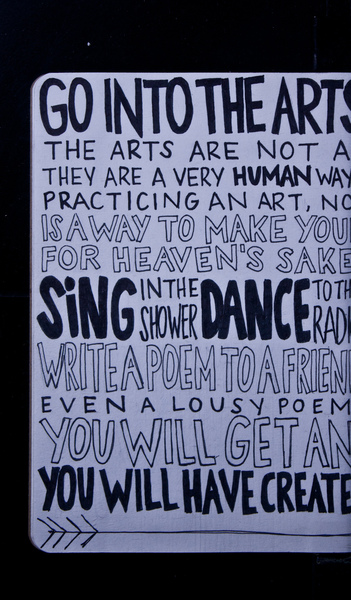 GO INTO THE ARTS
THE ARTS ARE NOT A
THEY ARE A VERY HUMAN WAY
PRACTICING AN ART, NO
IS A WAY TO MAKE YOU
FOR HEAVEN'S SAKE
SiNG IN THE SHOWER DANCE TO TH RADI
WRITE A POEM TO A FRIEN
EVEN A LOUSY POEM
YOU WILL GET AN
YOU WILL HAVE CREATE